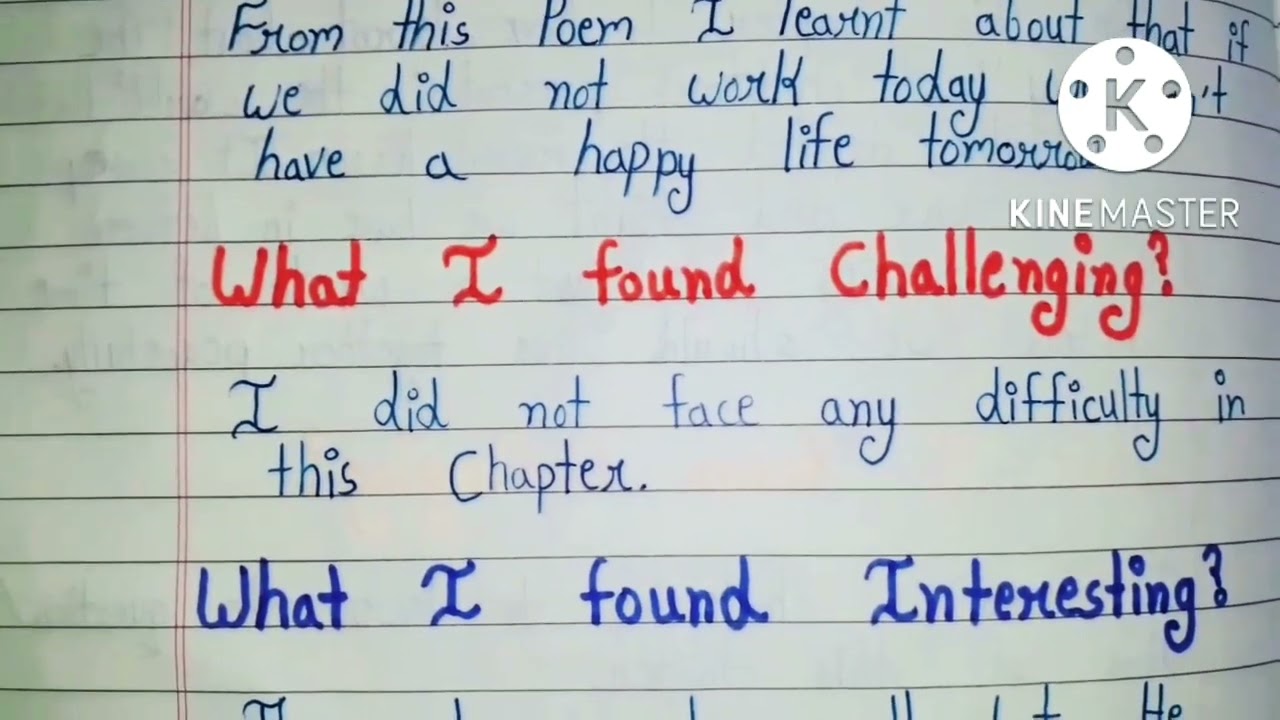 From this Poem I learnt about that if
we did not work today
have a happy life tomorrow
K
KINEMASTER
What I found Challenging?
I did not face any difficulty in
this Chapter.
What I found Interesting?